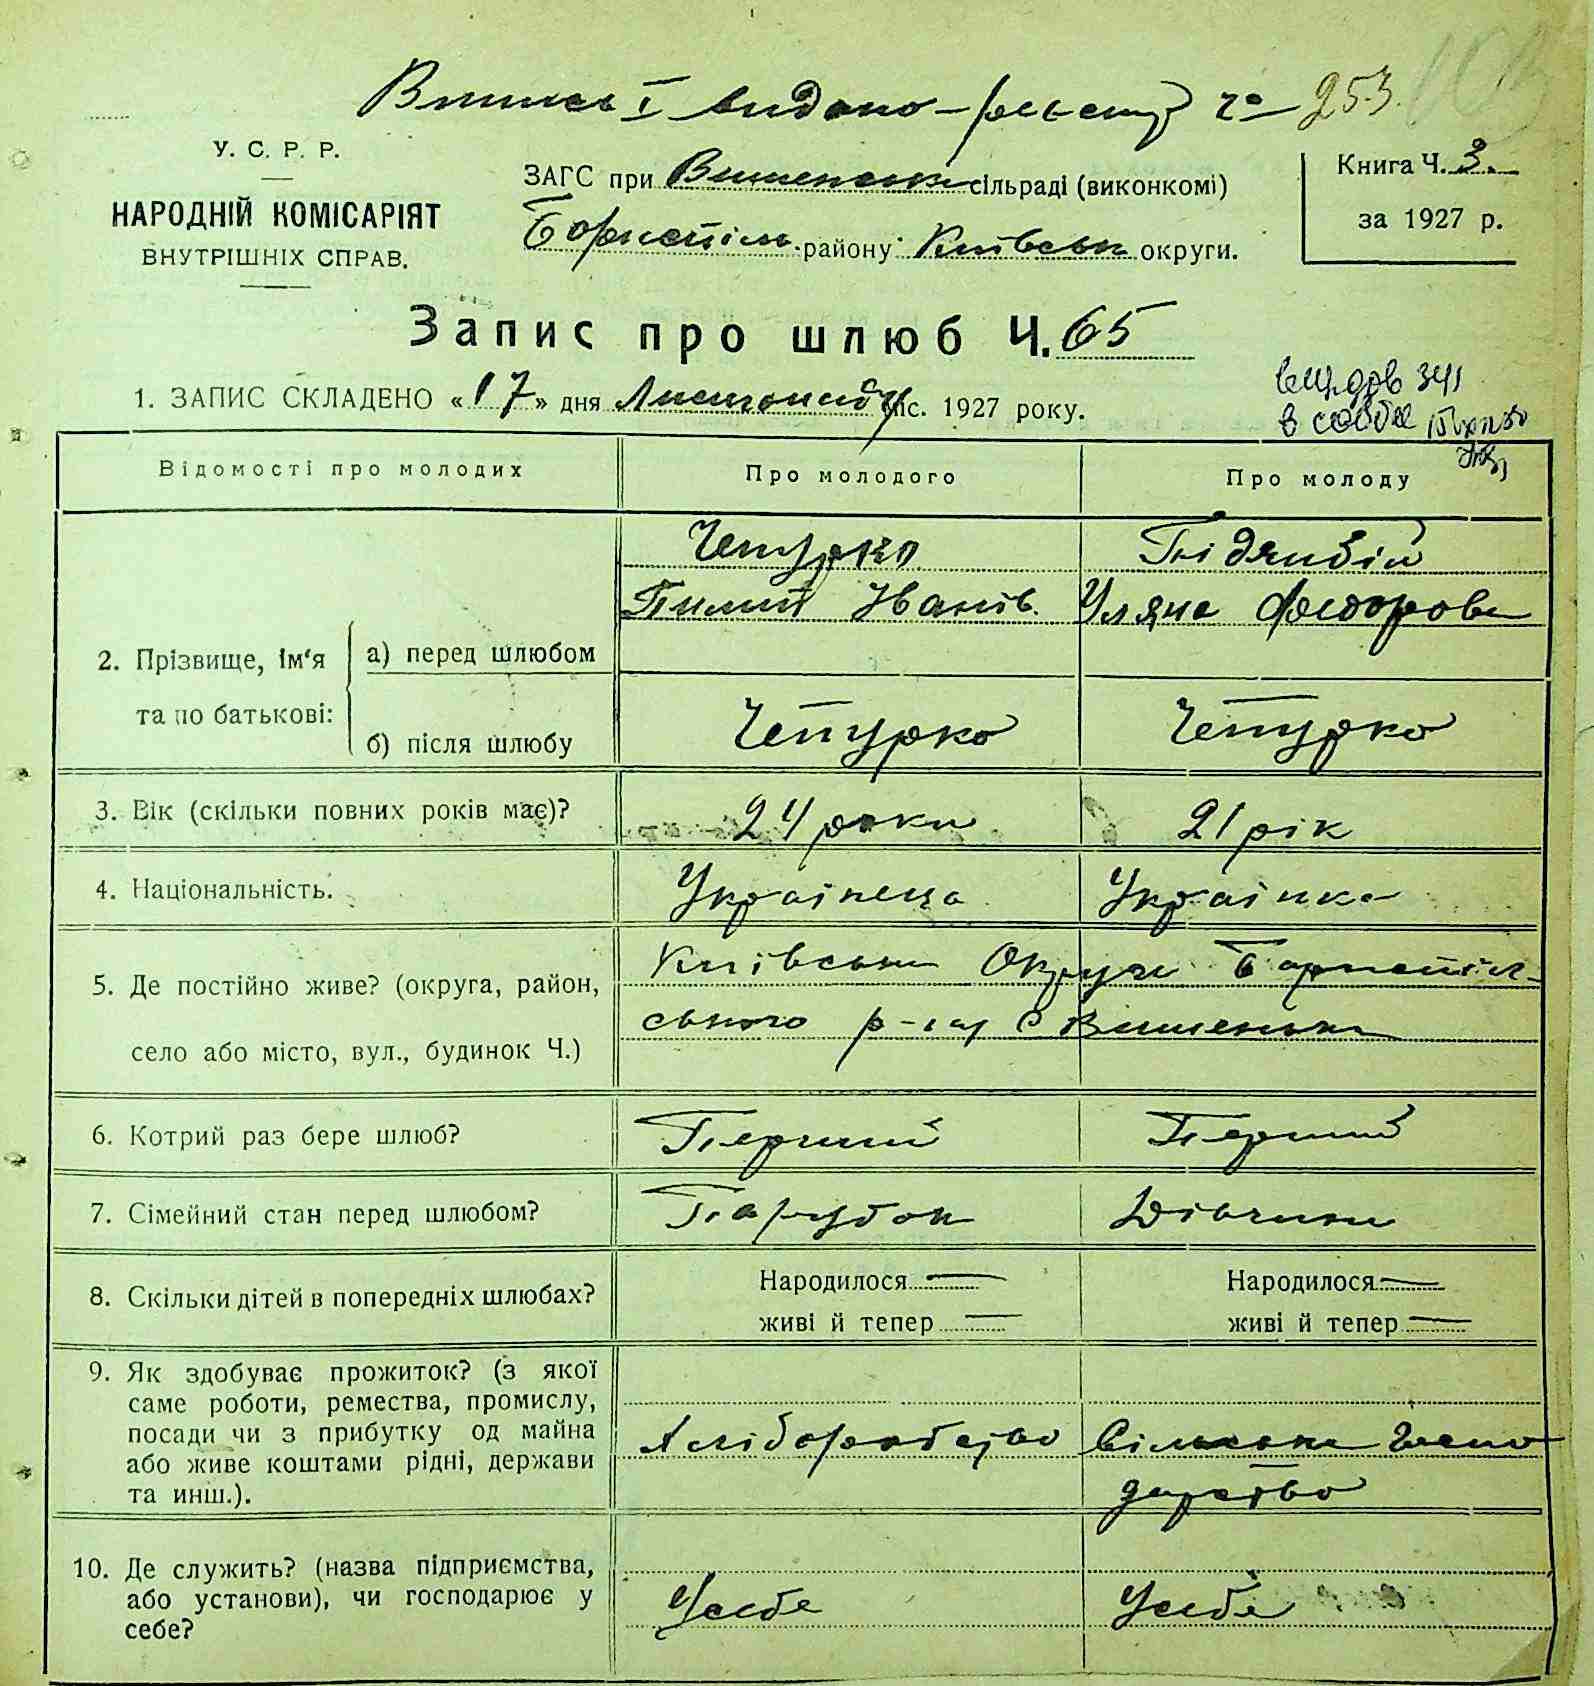 Виписъ I видано - реєстр ч. 253.
У. С. Р. Р.
НАРОДНІЙ КОМІСАРІЯТ
ВНУТРІШНІХ СПРАВ.
ЗАГС при Вишенській сільраді (виконкомі)
Бориспіль. району Київськ округи.
Книга Ч. 3.
за 1927 р.
Запис про шлюб Ч. 65
1. ЗАПИС СКЛАДЕНО «17» дня Листопаду міс. 1927 року.
Відомості про молодих
Про молодого
Про молоду
2. Прізвище, ім'я та по батькові:
а) перед шлюбом
Чепурко
Пилип Іванів.
Уляна Федорова
б) після шлюбу
Чепурко
Чепурко
3. Вік (скільки повних років має)?
24 роки
21 рік
4. Національність.
Українець
Українка
5. Де постійно живе? (округа, район,
село або місто, вул., будинок Ч.)
Київська Округи Бориспіль-
ського р-ну с Вишеньки
6. Котрий раз бере шлюб?
Перший
Перший
7. Сімейний стан перед шлюбом?
Парубок
Дівчина
8. Скільки дітей в попередніх шлюбах?
Народилося —
живі й тепер —
Народилося —
живі й тепер —
9. Як здобуває прожиток? (з якої
саме роботи, ремества, промислу,
посади чи з прибутку од майна
або живе коштами рідні, держави
та инш.).
Хліборобство
Сільське госпо
дарство
10. Де служить? (назва підприємства,
або установи), чи господарює у
себе?
Усебе
Усебе